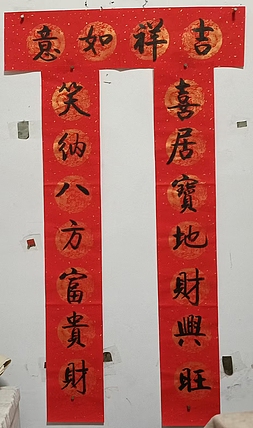 吉祥如意
喜居寶地財興旺
笑納八方富貴財